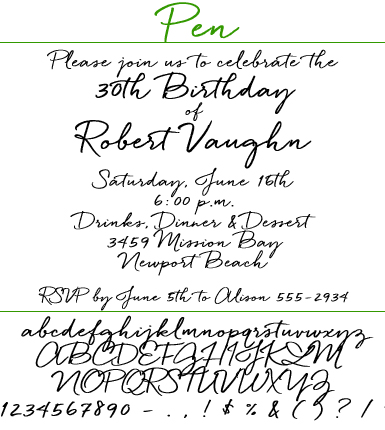 Pen
Please join us to celebrate the
30th Birthday
of
Robert Vaughn
Saturday, June 16th
6:00 p.m.
Drinks, Dinner & Dessert
3459 Mission Bay
Newport Beach
RSVP by June 5th to Alison 555-2934
abcdefghijklmnopqrstuvwxyz
ABCDEFGHIJKLM
NOPQRSTUVWXYZ
1234567890 - . , ! $ % & ( ) ? /